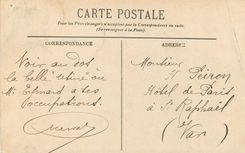 CARTE POSTALE
Tous les Pays étrangers n'acceptent pas la Correspondance au recto
(Se renseigner à la Poste)
CORRESPONDANCE
ADRESSE
Voir au dos
la belle
Mr Edouard a ses
occupations.
Monsieur
Peiron
Hotel de Paris
à St Raphaël
(Var)